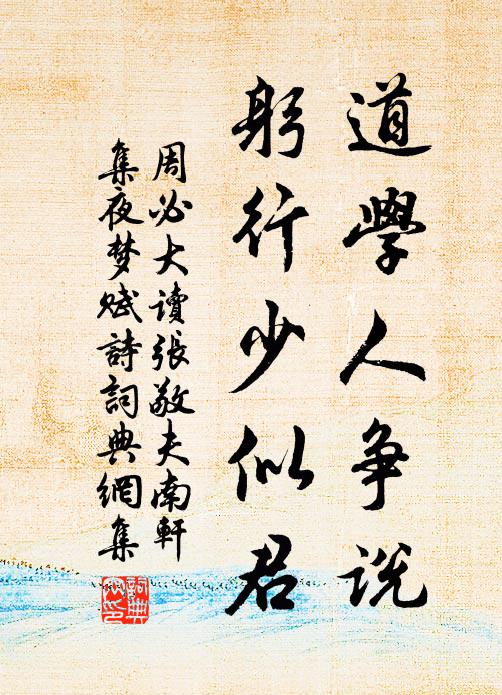 道學人争説
躬行少似君
周必大讀張敬夫南軒
集夜梦赋詩詞典網集